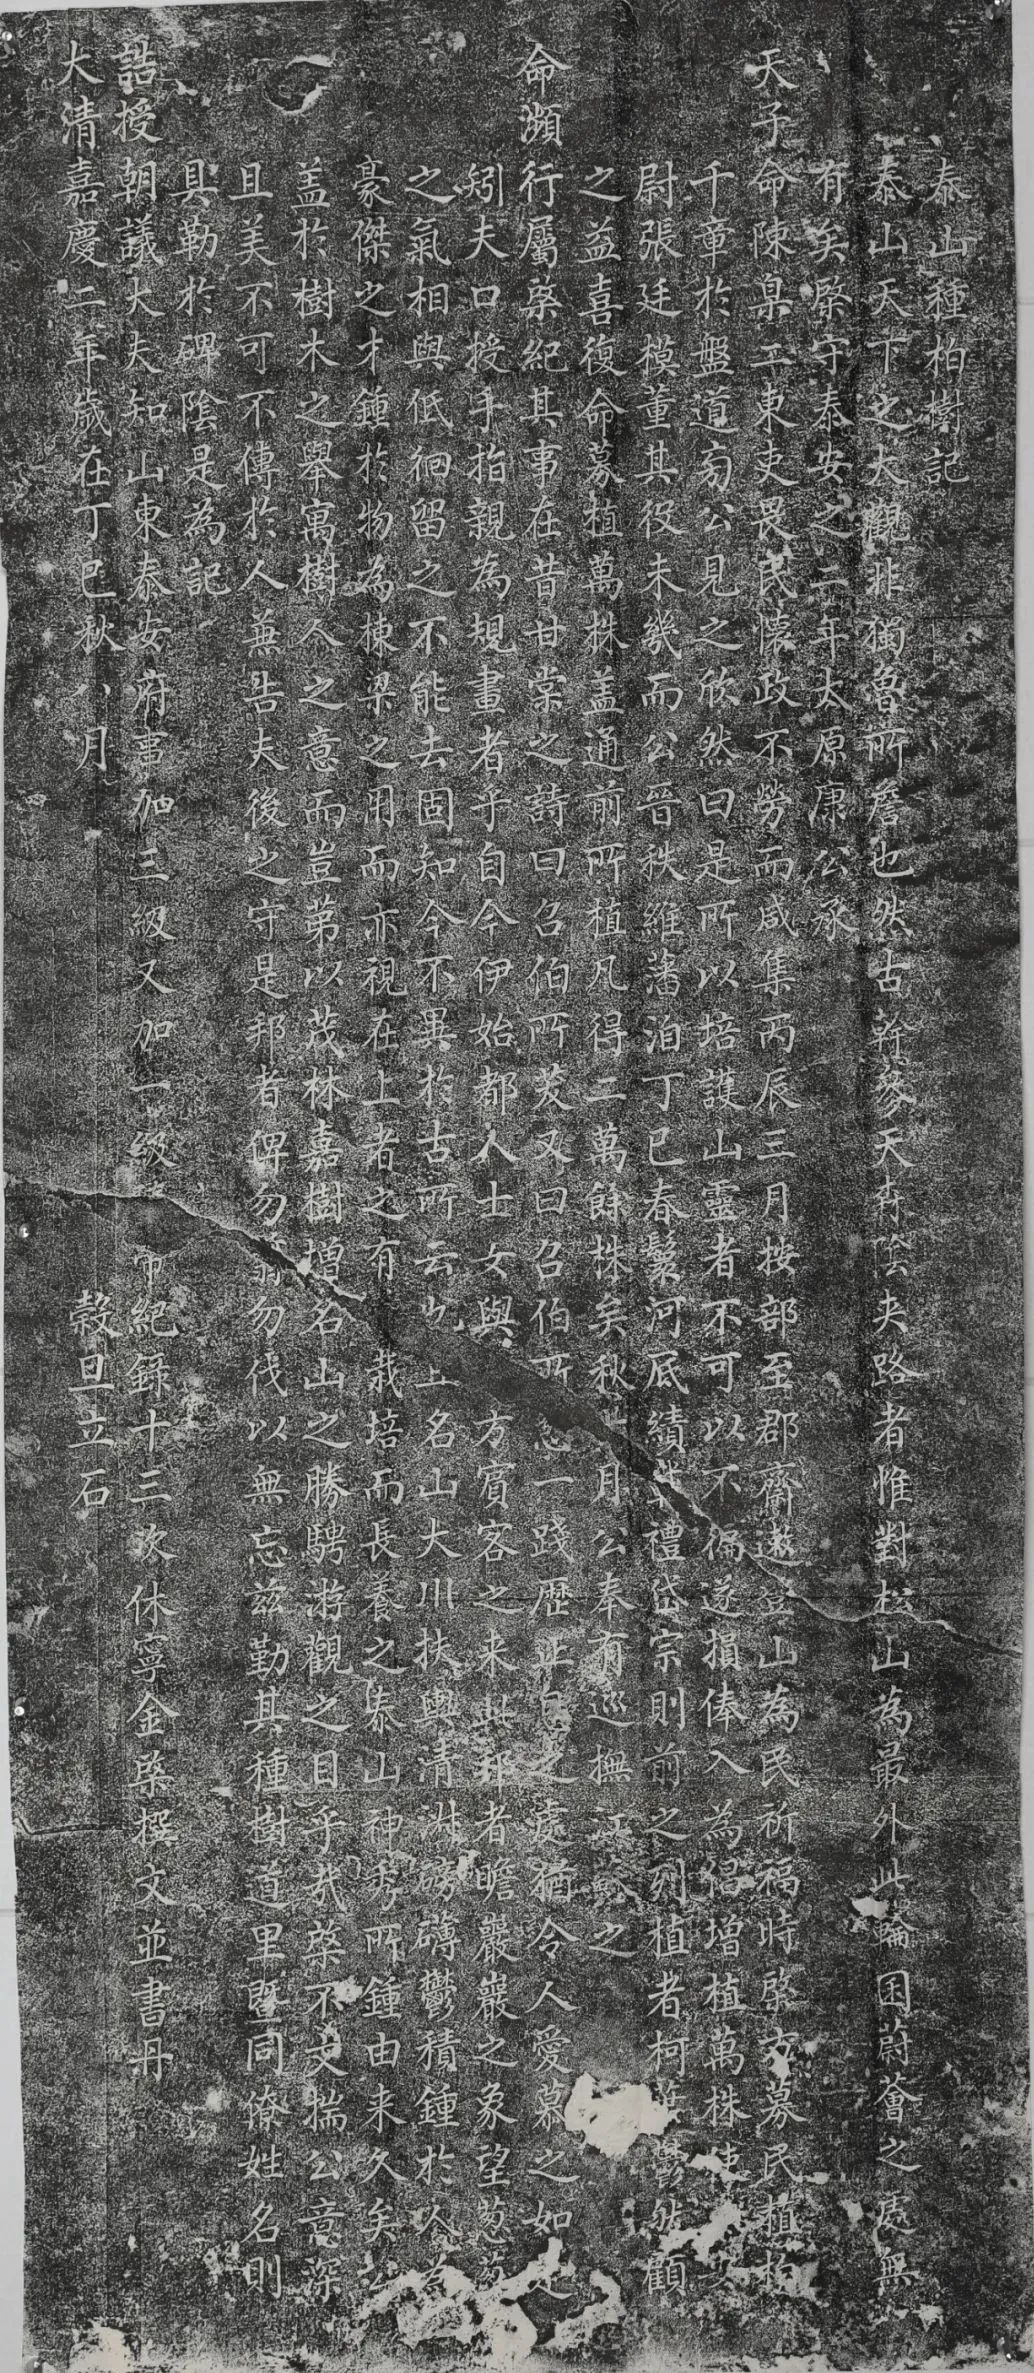 泰山種柏樹記
泰山天下之大觀非獨魯所詹也然古幹參天森陰夾路者惟對松山為最外此輪囷蔚薈之處無
有矣棨守泰安之二年太原康公承
天子命陳臬二東吏畏民懷政不勞而咸集丙辰三月按部至郡齋遬登山為民祈福時棨方募民植柏
千章於盤道旁公見之欣然曰是所以培護山靈者不可以不徧遂損俸入為倡增植萬株使
尉張廷模董其役未幾而公晉秩維藩洎丁巳春鬃河底績禮岱宗則前之列植者柯葉鬱然顧
之益喜復命募植萬株蓋通前所植凡得二萬餘株矣秋月公奉有巡撫江蘇之
命瀕行屬棨紀其事在昔甘棠之詩曰召伯所茇又曰召伯所憩一踐歷止息之處猶令人愛慕之如是
矧夫口授手指親為規畫者乎自今伊始都人士女與方賓客之來此邦者瞻巖巖之象望蔥蔥
之氣相與低徊留之不能去固知今不異於古所云也名山大川扶輿清淑磅礴鬱積鍾於人為
豪傑之才鍾於物為棟梁之用而亦視在上者之有栽培而長養之泰山神秀所鍾由来久矣公
盖於樹木之舉寓樹人之意而豈第以茂林嘉樹增名山之勝騁游觀之目乎哉棨不文揣公意深
且美不可不傳於人兼告夫後之守是邦者俾勿翦勿伐以無忘茲勤其種樹道里暨同僚姓名則
具勒於碑陰是為記
誥授朝議大夫知山東泰安府事加三級又加一級紀錄十三次休寧金棨撰文並書丹
大清嘉慶二年歲在丁巳秋八月穀旦立石